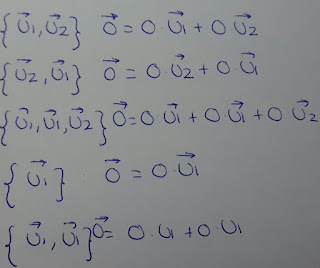 {u⃗₁, u⃗₂} 0⃗ = 0·u⃗₁ + 0·u⃗₂
{u⃗₂, u⃗₁} 0⃗ = 0·u⃗₂ + 0·u⃗₁
{u⃗₁, u⃗₁, u⃗₂} 0⃗ = 0·u⃗₁ + 0·u⃗₁ + 0·u⃗₂
{u⃗₁} 0⃗ = 0·u⃗₁
{u⃗₁, u⃗₁} 0⃗ = 0·u₁ + 0·u₁